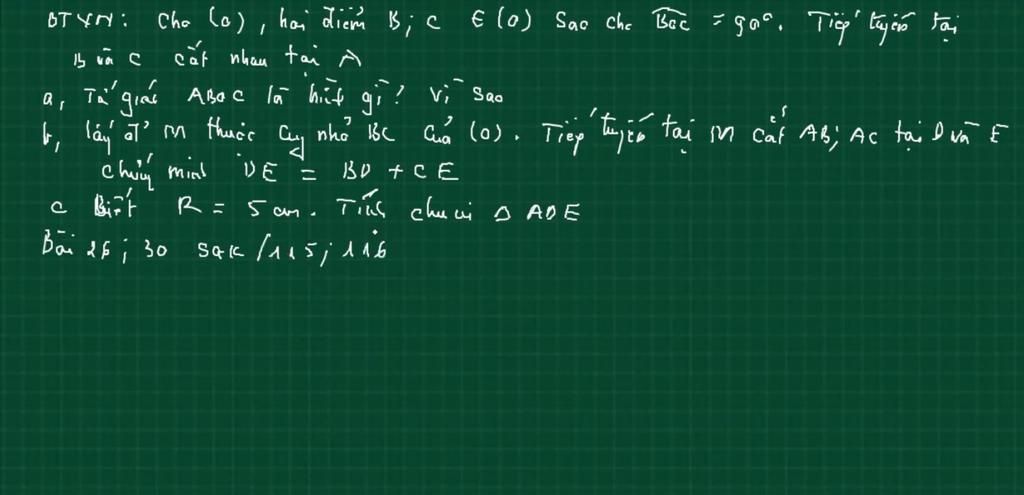 BTVN: Cho (O), hai điểm B; C ∈ (O) sao cho BOC = 90°. Tiếp tuyến tại
B và C cắt nhau tại A
a, Tứ giác ABOC là hình gì? Vì sao
b, lấy đ' M thuộc cung nhỏ BC của (O). Tiếp tuyến tại M cắt AB; AC tại D và E
chứng minh DE = BD + CE
c Biết R = 5 cm. Tính chu vi Δ ADE
Bài 26; 30 SGK/115; 116